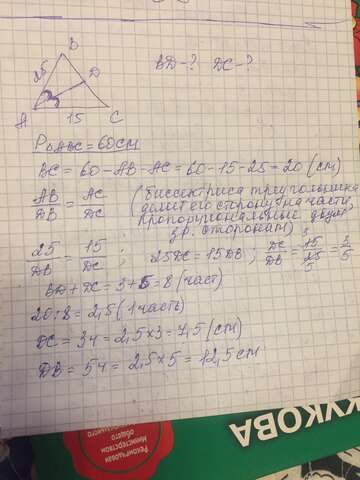 B
25
D
A
15
C
BD-? DC-?
P△ABC = 60см
BC = 60 - AB - AC = 60 - 15 - 25 = 20 (см)
AB/DB = AC/DC (биссектриса треугольника
делит его сторону на части,
пропорциональные двум
др. сторонам)
25/DB = 15/DC ; 25DC = 15DB ; DC/DB = 15/25 = 3/5
3
5
BD + DC = 3+5 = 8 (част)
20:8 = 2,5 (1 часть)
DC = 3ч = 2,5×3 = 7,5 (см)
DB = 5ч = 2,5×5 = 12,5 см
ЖУКОВА
Рекомендован
Министерством
общего